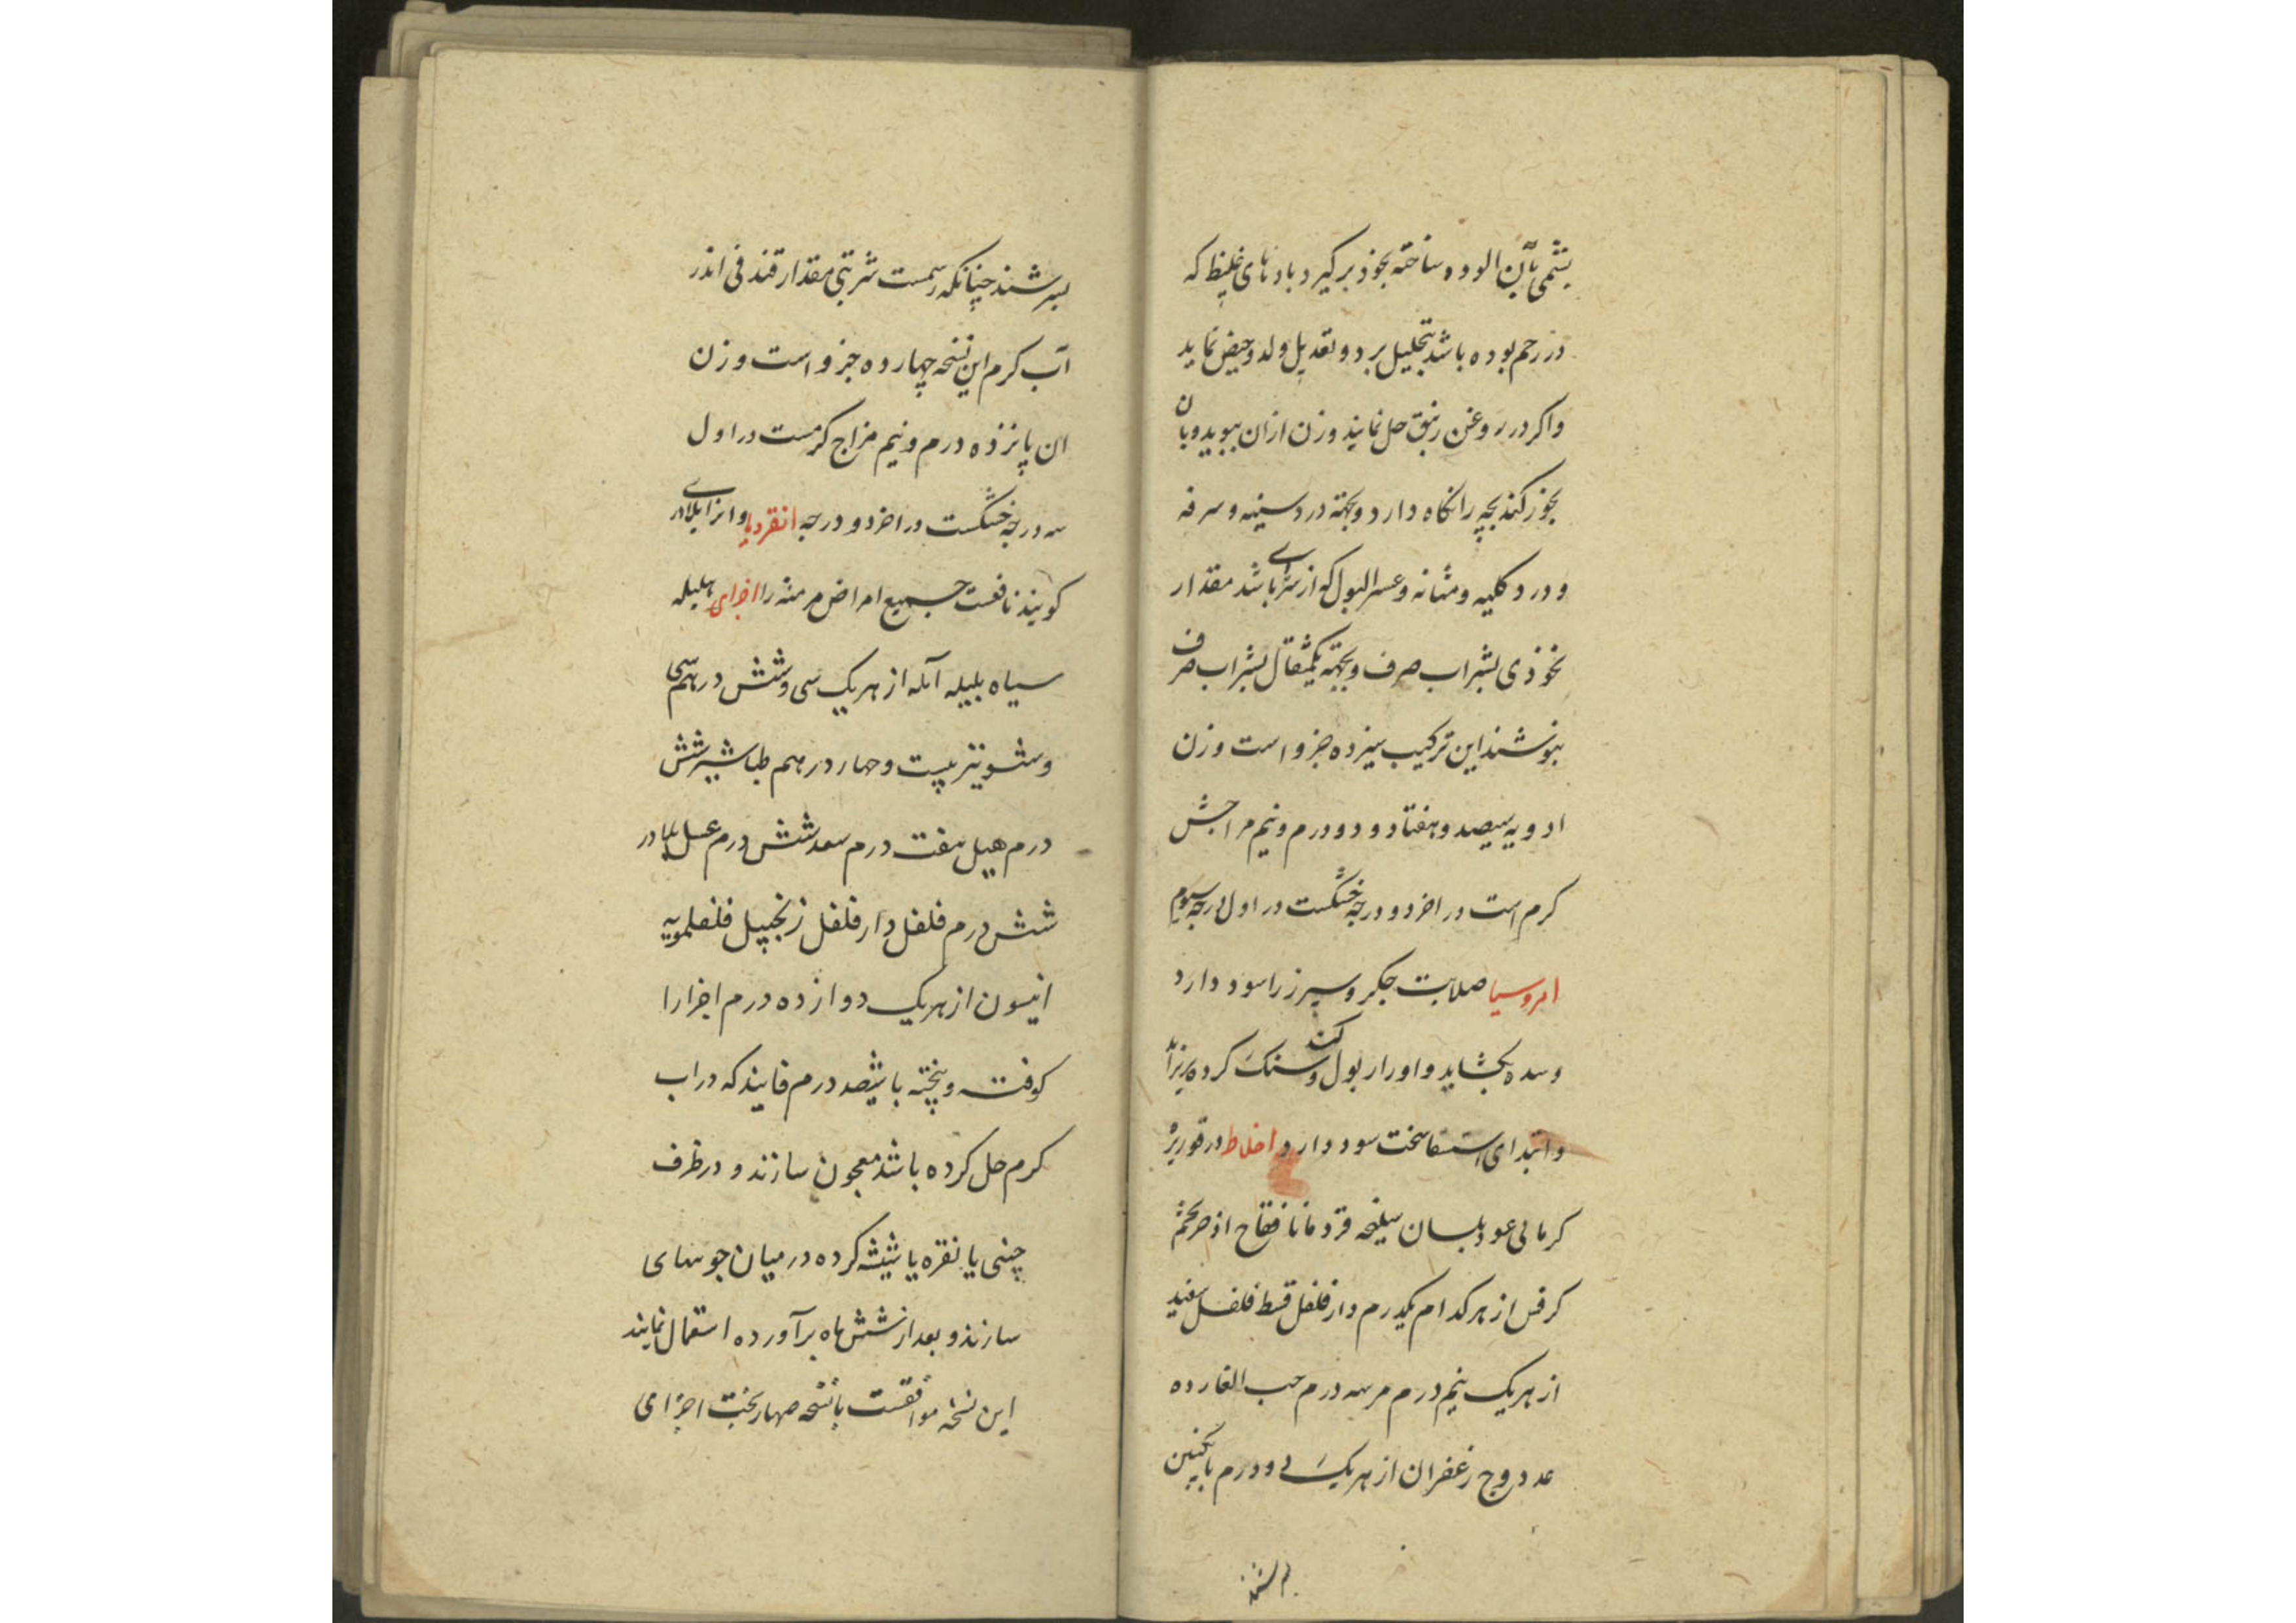 پشمی بآن الوده ساخته بخوذ برکیرد بادهای غلیظ که
در رحم بوده باشد بتحلیل برد و تعدیل ولد و حیض نماید
واکر در روغن زنبق حل نمایند وزن ازان ببوید وبان
بخوز کند بچه را نکاه دارد وبجهة درد سینه و سرفه
و درد کلیه و مثانه و عسر البول که از سرمای باشد مقدار
نخوذی بشراب صرف وبجهة یکمثقال بشراب صرف
بنوشند این ترکیب سیزده جزو است وزن
ادویه سیصد و هفتاد و دو درم و نیم مزاجش
کرم است در اخر دو درجه خشکست در اول درجه سیوم
امروسیا صلابت جکر و سپرز را سود دارد
وسده بکشاید و اورار بول کند و سنک کرده بریزاند
وابتدای استسقا سخت سود دارد اخلاط در قوریژه
کرمانی عود بلسان سلیخه قردمانا فقاح اذخر تخم
کرفس از هر کدام یکدرم دارفلفل قسط فلفل سفید
از هر یک نیم درم مر سه درم حب الغار ده
عدد وج زعفران از هر یک دو درم بانکبین
بسرشند
بسرشند چنانکه رسمست شربتی مقدار فندقی اندر
آب کرم این نسخه چهارده جزو است وزن
ان پانزده درم و نیم مزاج کرمست در اول
سه درجه خشکست در اخر دو درجه انقردیا وانرا بلادری
کویند نافعست جمیع امراض مزمنه را اجزای هلیله
سیاه بلیله آمله از هر یک سی و شش درهم سی
وشونیز بیست و چهار درهم طباشیر شش
درم هیل هفت درم سعد شش درم عسل بلادر
شش درم فلفل دارفلفل زنجبیل فلفلمویه
انیسون از هر یک دوازده درم اجزا را
کوفته و پخته با ششصد درم فانیذ که در اب
کرم حل کرده باشد معجون سازند و در ظرف
چینی یا نقره یا شیشه کرده در میان جو سهای
سازند و بعد از شش ماه برآورده استعمال نمایند
این نسخه موافقست با نسخه صهاربخت اجزای